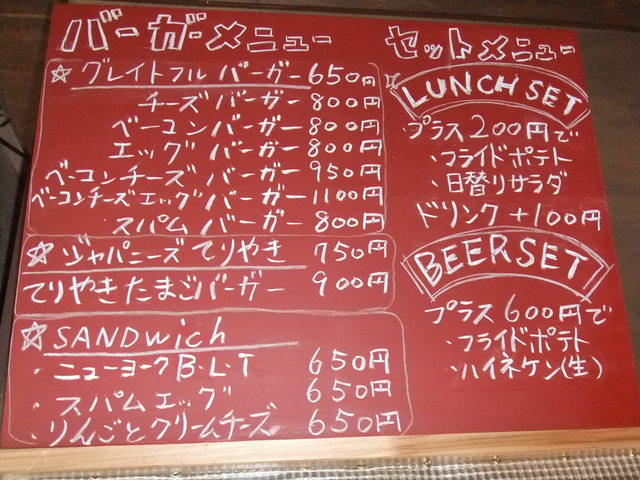 バーガーメニュー
☆グレイトフルバーガー 650円
チーズバーガー 800円
ベーコンバーガー 800円
エッグバーガー 800円
ベーコンチーズバーガー 950円
ベーコンチーズエッグバーガー 1100円
スパムバーガー 800円
☆ジャパニーズてりやき 750円
てりやきたまごバーガー 900円
☆SANDwich
・ニューヨークB.L.T 650円
・スパムエッグ 650円
・りんごとクリームチーズ 650円
セットメニュー
LUNCH SET
プラス200円で
・フライドポテト
・日替りサラダ
ドリンク+100円
BEERSET
プラス600円で
・フライドポテト
・ハイネケン(生)